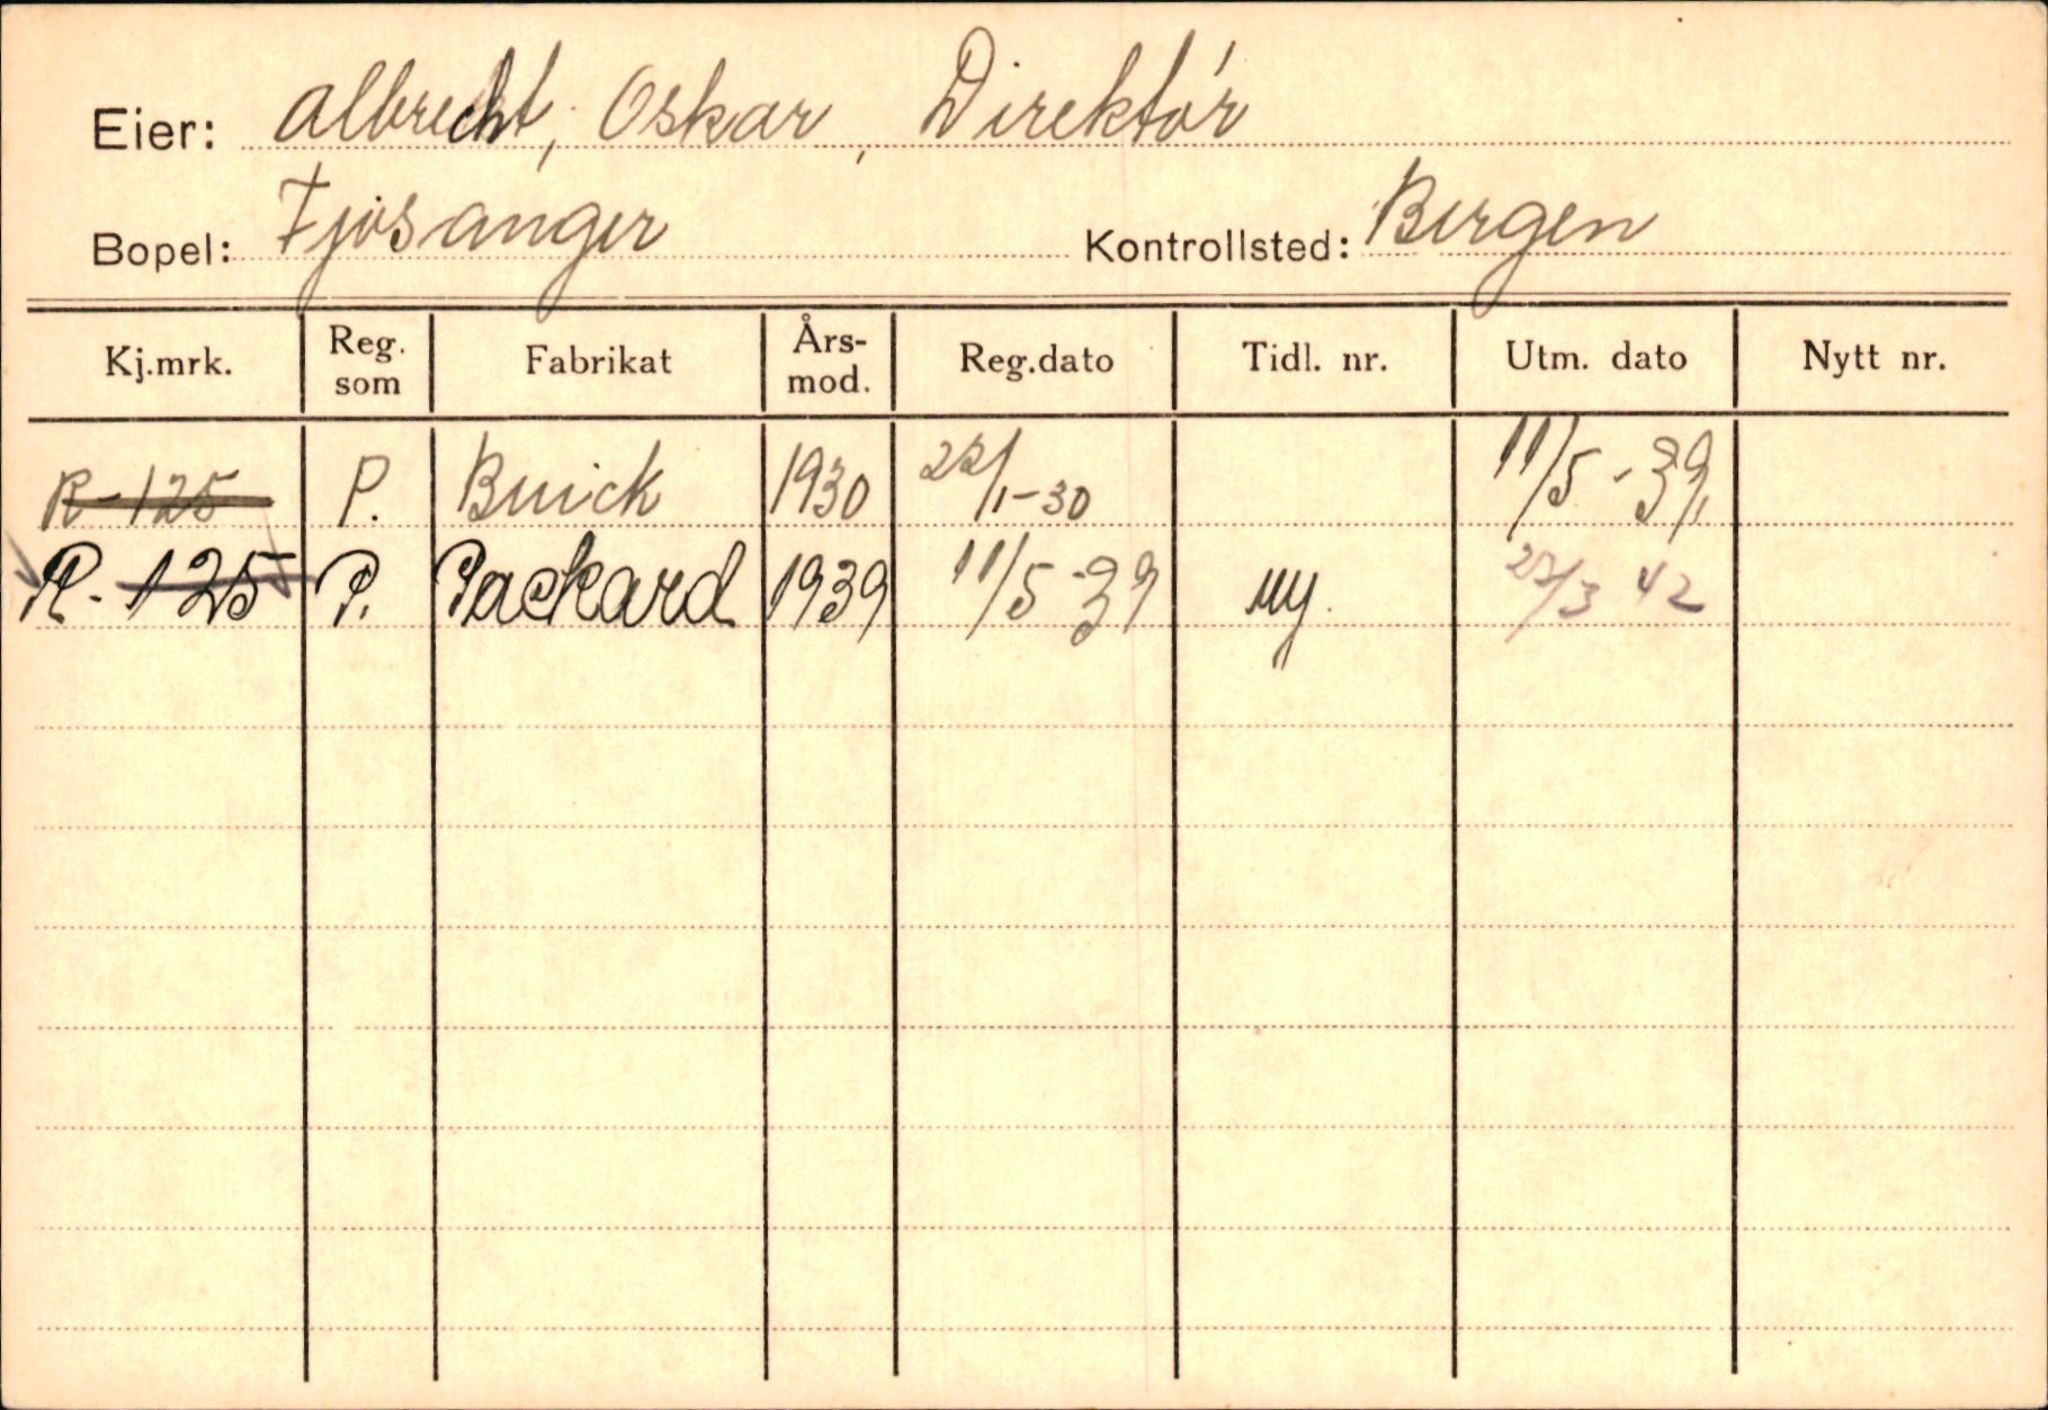 Eier: Albrecht, Oskar, Direktór
Bopel: Fjøsanger Kontrollsted: Bergen
Kj.mrk. Reg. som Fabrikat Års-mod. Reg.dato Tidl. nr. Utm. dato Nytt nr.
R-125 P. Buick 1930 22/1-30 11/5-39
R-125 P. Packard 1939 11/5-39 ny. 27/3 42